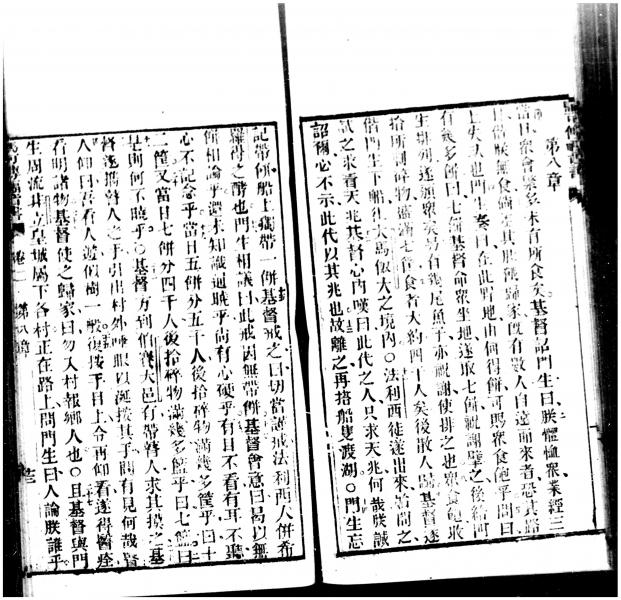 第八章
當日眾會繁多未有所食矣基督詔門生曰朕體恤眾業經三
日偕朕無食倘若其服餒歸家既有數人自遠而來者恐其路
上失軟也門生奏曰在此野地由何得餅可瑪眾食飽乎問曰
有幾多餅曰七個基督命眾坐地遂取七餅祝謝擘之後給門
生排列遂遞眾矣另有幾尾魚子亦祝謝使排之也眾食飽取
拾所剩碎物滿七筐食者大約四千人矣後散人歸基督遂
偕門生下船往大馬做大之境內〇法利西徒遂出來詰問之
試之求看天兆基督心內嘆曰此代之人只求天兆何哉朕誠
詔爾必不示此代以其兆也故離之再搭船雙渡湖〇門生忘
記帶餅船上獨帶一餅基督戒之曰切當謹戒法利西人併希
羅得之酵也門生相議曰此戒因無帶餅基督會意曰曷以無
餅相論乎還未知識迴曉乎尚有心硬乎有目不看有耳不聽
心不記念乎當日五餅分五千人後拾碎物滿幾多筐乎曰十
二筐又當日七餅分四千人後拾碎物滿幾多籃乎曰七籃曰
是則何不曉乎〇基督方到伯賽大邑有帶瞽人求其摸之基
督遂攜瞽人之手引出村外唾眼以涎按其手問有見何哉瞽
人仰曰吾看人遊似樹一般後按手目上令再仰看遂得醫痊
看明諸物基督使之歸家曰勿入村報鄉人也〇且基督與門
生周流其立皇城屬下各村正在路上問門生曰人論朕誰乎
卷二 第八章